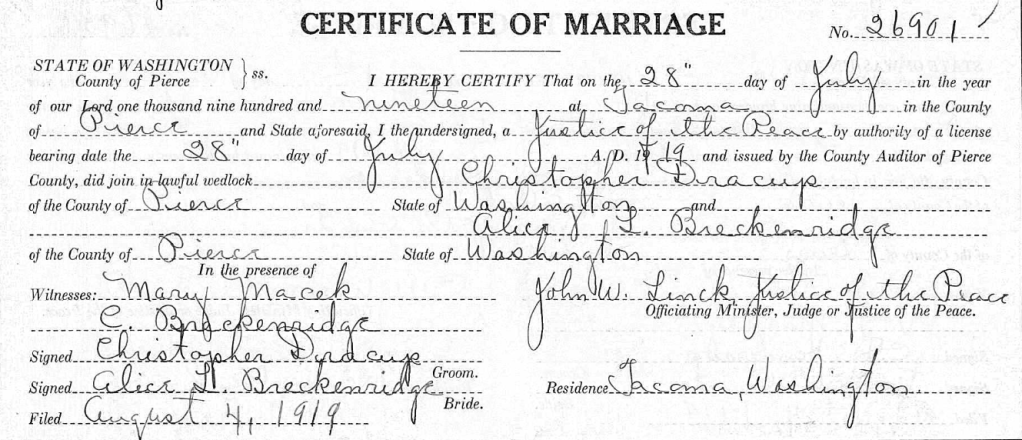 CERTIFICATE OF MARRIAGE
No. 26901
STATE OF WASHINGTON
County of Pierce } ss.
I HEREBY CERTIFY That on the 28" day of July in the year
of our Lord one thousand nine hundred and nineteen at Tacoma in the County
of Pierce and State aforesaid, I the undersigned, a Justice of the Peace by authority of a license
bearing date the 28" day of July A. D. 19 19 and issued by the County Auditor of Pierce
County, did join in lawful wedlock Christopher Diracup
of the County of Pierce State of Washington and
Alice L. Breckenridge
of the County of Pierce State of Washington
In the presence of
Witnesses: Mary Macek
John W. Linck, Justice of the Peace
Officiating Minister, Judge or Justice of the Peace.
C. Breckenridge
Signed Christopher Diracup Groom.
Signed Alice L. Breckenridge Bride.
Residence Tacoma, Washington.
Filed August 4, 1919